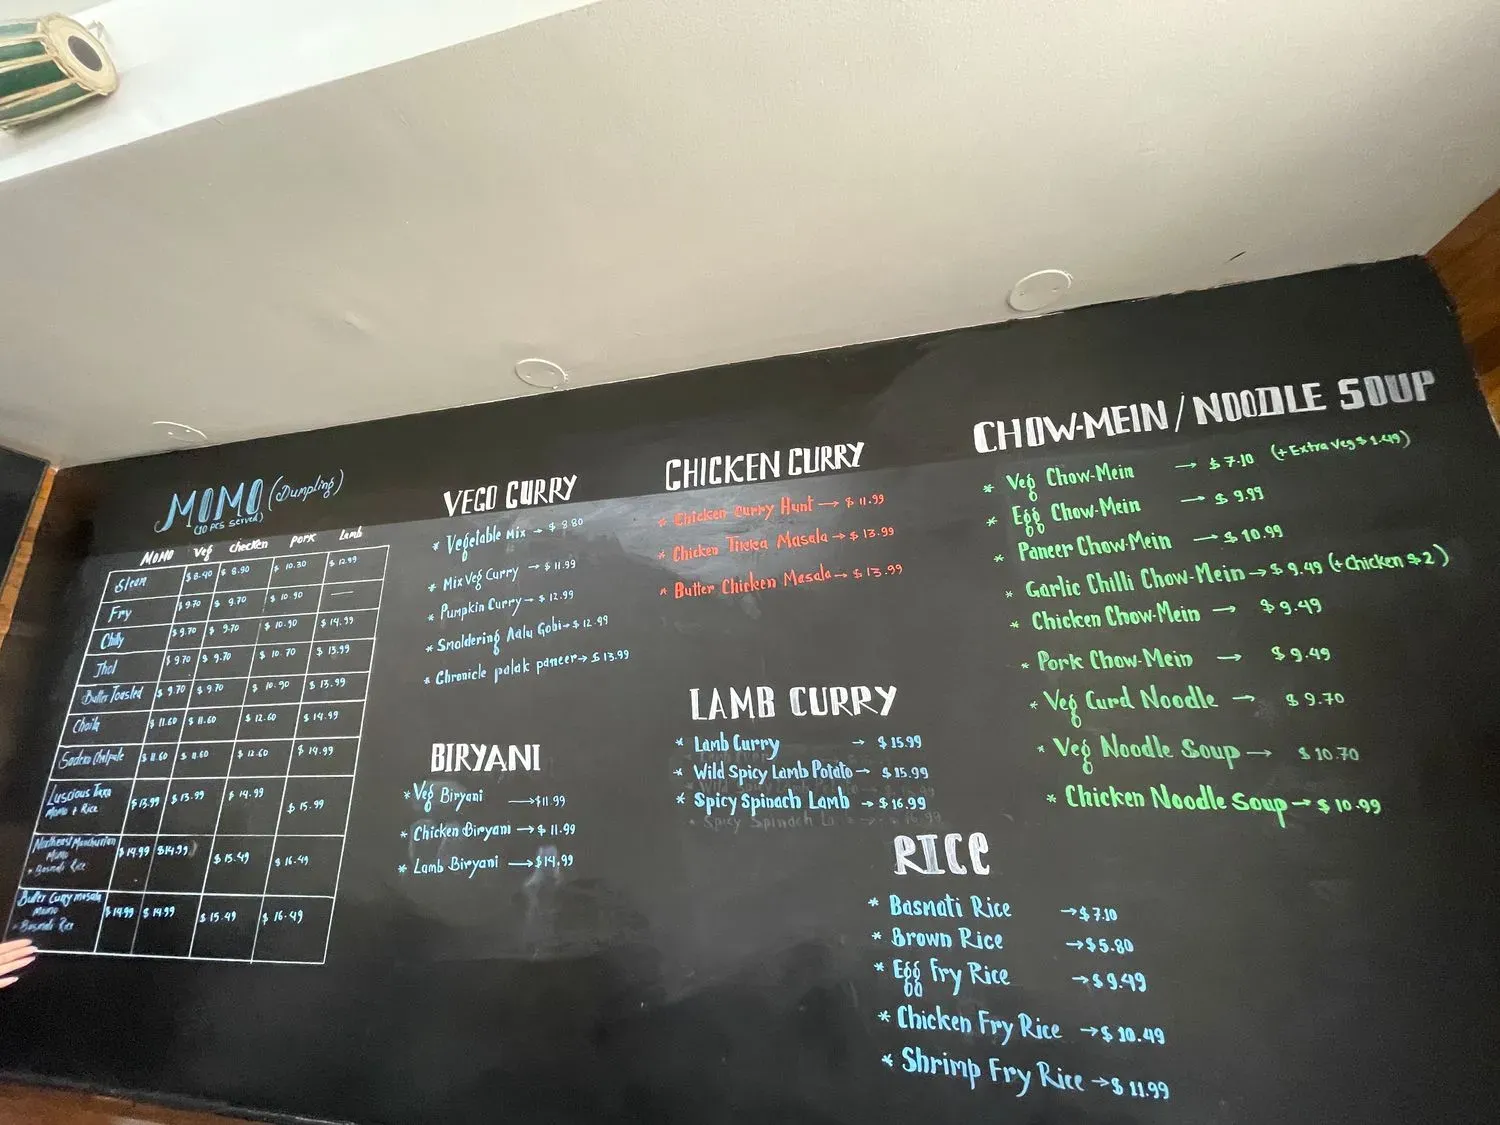 MOMO (Dumpling)
(10 pcs served)
MOMO Veg chicken pork Lamb
Steam $8.90 $ 8.90 $ 10.30 $ 12.99
Fry $9.70 $ 9.70 $ 10.90 —
Chilly $9.70 $ 9.70 $ 10.90 $ 14.99
Jhol $9.70 $ 9.70 $ 10.70 $ 13.99
Butter Toasted $ 9.70 $ 9.70 $ 10.90 $ 13.99
Choila $ 11.60 $ 11.60 $ 12.60 $ 14.99
$ 11.60 $ 11.60 $ 12.60 $ 14.99
Luscious $13.99 $ 13.99 $ 14.99 $ 15.99
Momo + Rice
Northeast Manchurian $14.99 $14.99 $ 15.49 $ 16.49
Momo
+ Basmati Rice
Butter Curry masala $14.99 $ 14.99 $ 15.49 $ 16.49
Momo
+ Basmati Rice
VEGO CURRY
* Vegetable Mix → $ 8.80
* Mix Veg Curry → $ 11.99
* Pumpkin Curry → $ 12.99
* Smoldering Aalu Gobi → $ 12.99
* Chronicle palak paneer → $ 13.99
BIRYANI
* Veg Biryani → $11.99
* Chicken Biryani → $ 11.99
* Lamb Biryani → $14.99
CHICKEN CURRY
* Chicken Curry Hunt → $ 11.99
* Chicken Tikka Masala → $ 13.99
* Butter Chicken Masala → $ 13.99
LAMB CURRY
* Lamb Curry → $ 15.99
* Wild Spicy Lamb Potato → $ 15.99
* Spicy Spinach Lamb → $ 16.99
CHOW-MEIN / NOODLE SOUP
* Veg Chow-Mein → $ 7.10 (+ Extra Veg $ 1.49)
* Egg Chow-Mein → $ 9.99
* Paneer Chow-Mein → $ 10.99
* Garlic Chilli Chow-Mein → $ 9.49 (+ Chicken $ 2)
* Chicken Chow-Mein → $ 9.49
* Pork Chow-Mein → $ 9.49
* Veg Curd Noodle → $ 9.70
* Veg Noodle Soup → $ 10.70
* Chicken Noodle Soup → $ 10.99
RICE
* Basmati Rice → $ 7.10
* Brown Rice → $ 5.80
* Egg Fry Rice → $ 9.49
* Chicken Fry Rice → $ 10.49
* Shrimp Fry Rice → $ 11.99